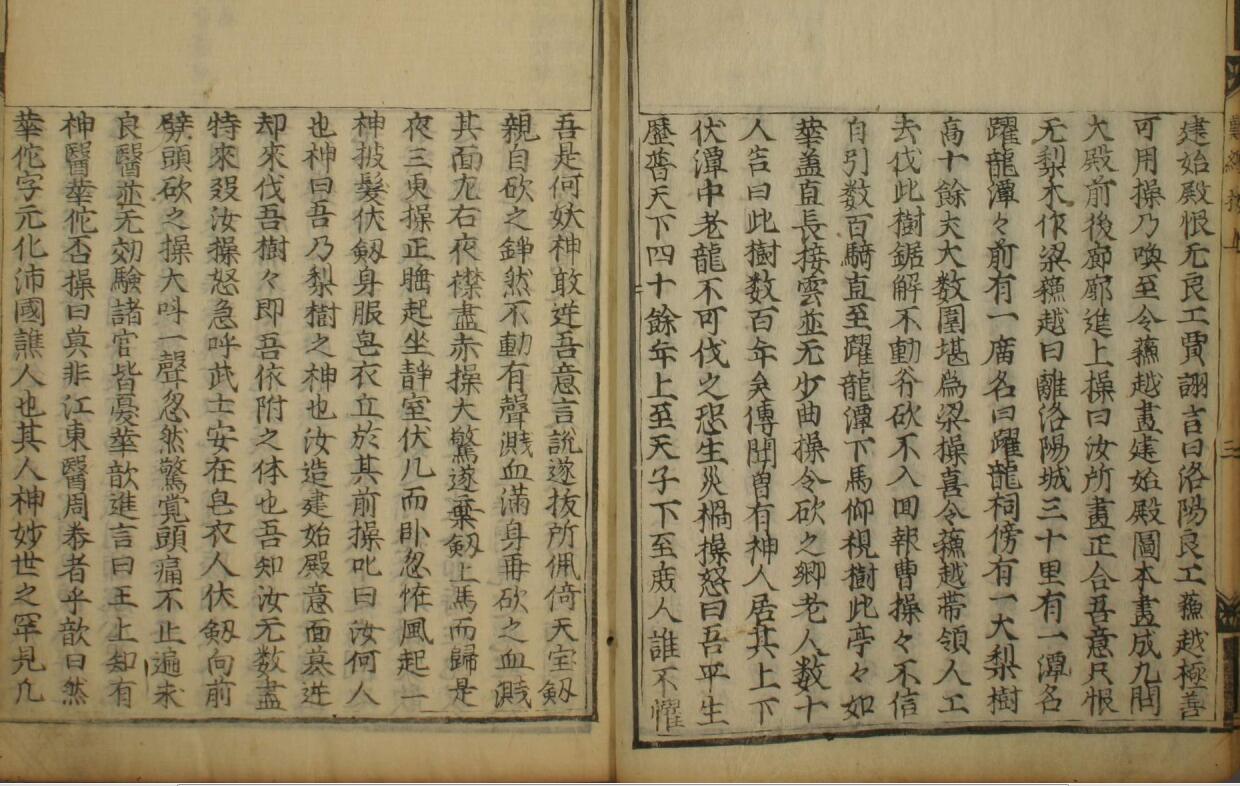 建始殿恨无良工賈詡言曰洛陽良工蘓越極善
可用操乃喚至令蘓越畫建始殿圖本畫成九間
大殿前後廊廓進上操曰汝所畫正合吾意只恨
无梨木作梁蘓越曰離洛陽城三十里有一潭名
躍龍潭々前有一庿名曰躍龍祠傍有一大梨樹
高十餘丈大数圍堪爲梁操喜令蘓越帶領人工
去伐此樹鋸解不動斧砍不入回報曹操々不信
自引数百騎直至躍龍潭下馬仰視樹此亭々如
華盖直長接雲並无少曲操令砍之鄉老人数十
人告曰此樹数百年矣傳聞曽有神人居其上下
伏潭中老龍不可伐之恐生災禍操怒曰吾平生
歷普天下四十餘年上至天子下至庻人誰不懼
吾是何妖神敢逆吾意言說遂抜所佩倚天宝劔
親自砍之錚然不動有聲濺血滿身再砍之血濺
其面左右衣襟盡赤操大驚遂棄劔上馬而歸是
夜三更操正睡起坐靜室伏几而卧忽恠風起一
神披髮伏劔身服皂衣立於其前操叱曰汝何人
也神曰吾乃梨樹之神也汝造建始殿意面䒳逆
却來伐吾樹々即吾依附之体也吾知汝无数盡
特來殺汝操怒急呼武士安在皂衣人伏劔向前
劈頭砍之操大呌一聲忽然驚覚頭痛不止遍求
良醫並无効驗諸官皆憂華歆進言曰王上知有
神醫華佗否操曰莫非江東醫周泰者乎歆曰然
華佗字元化沛國譙人也其人神妙世之罕見凢